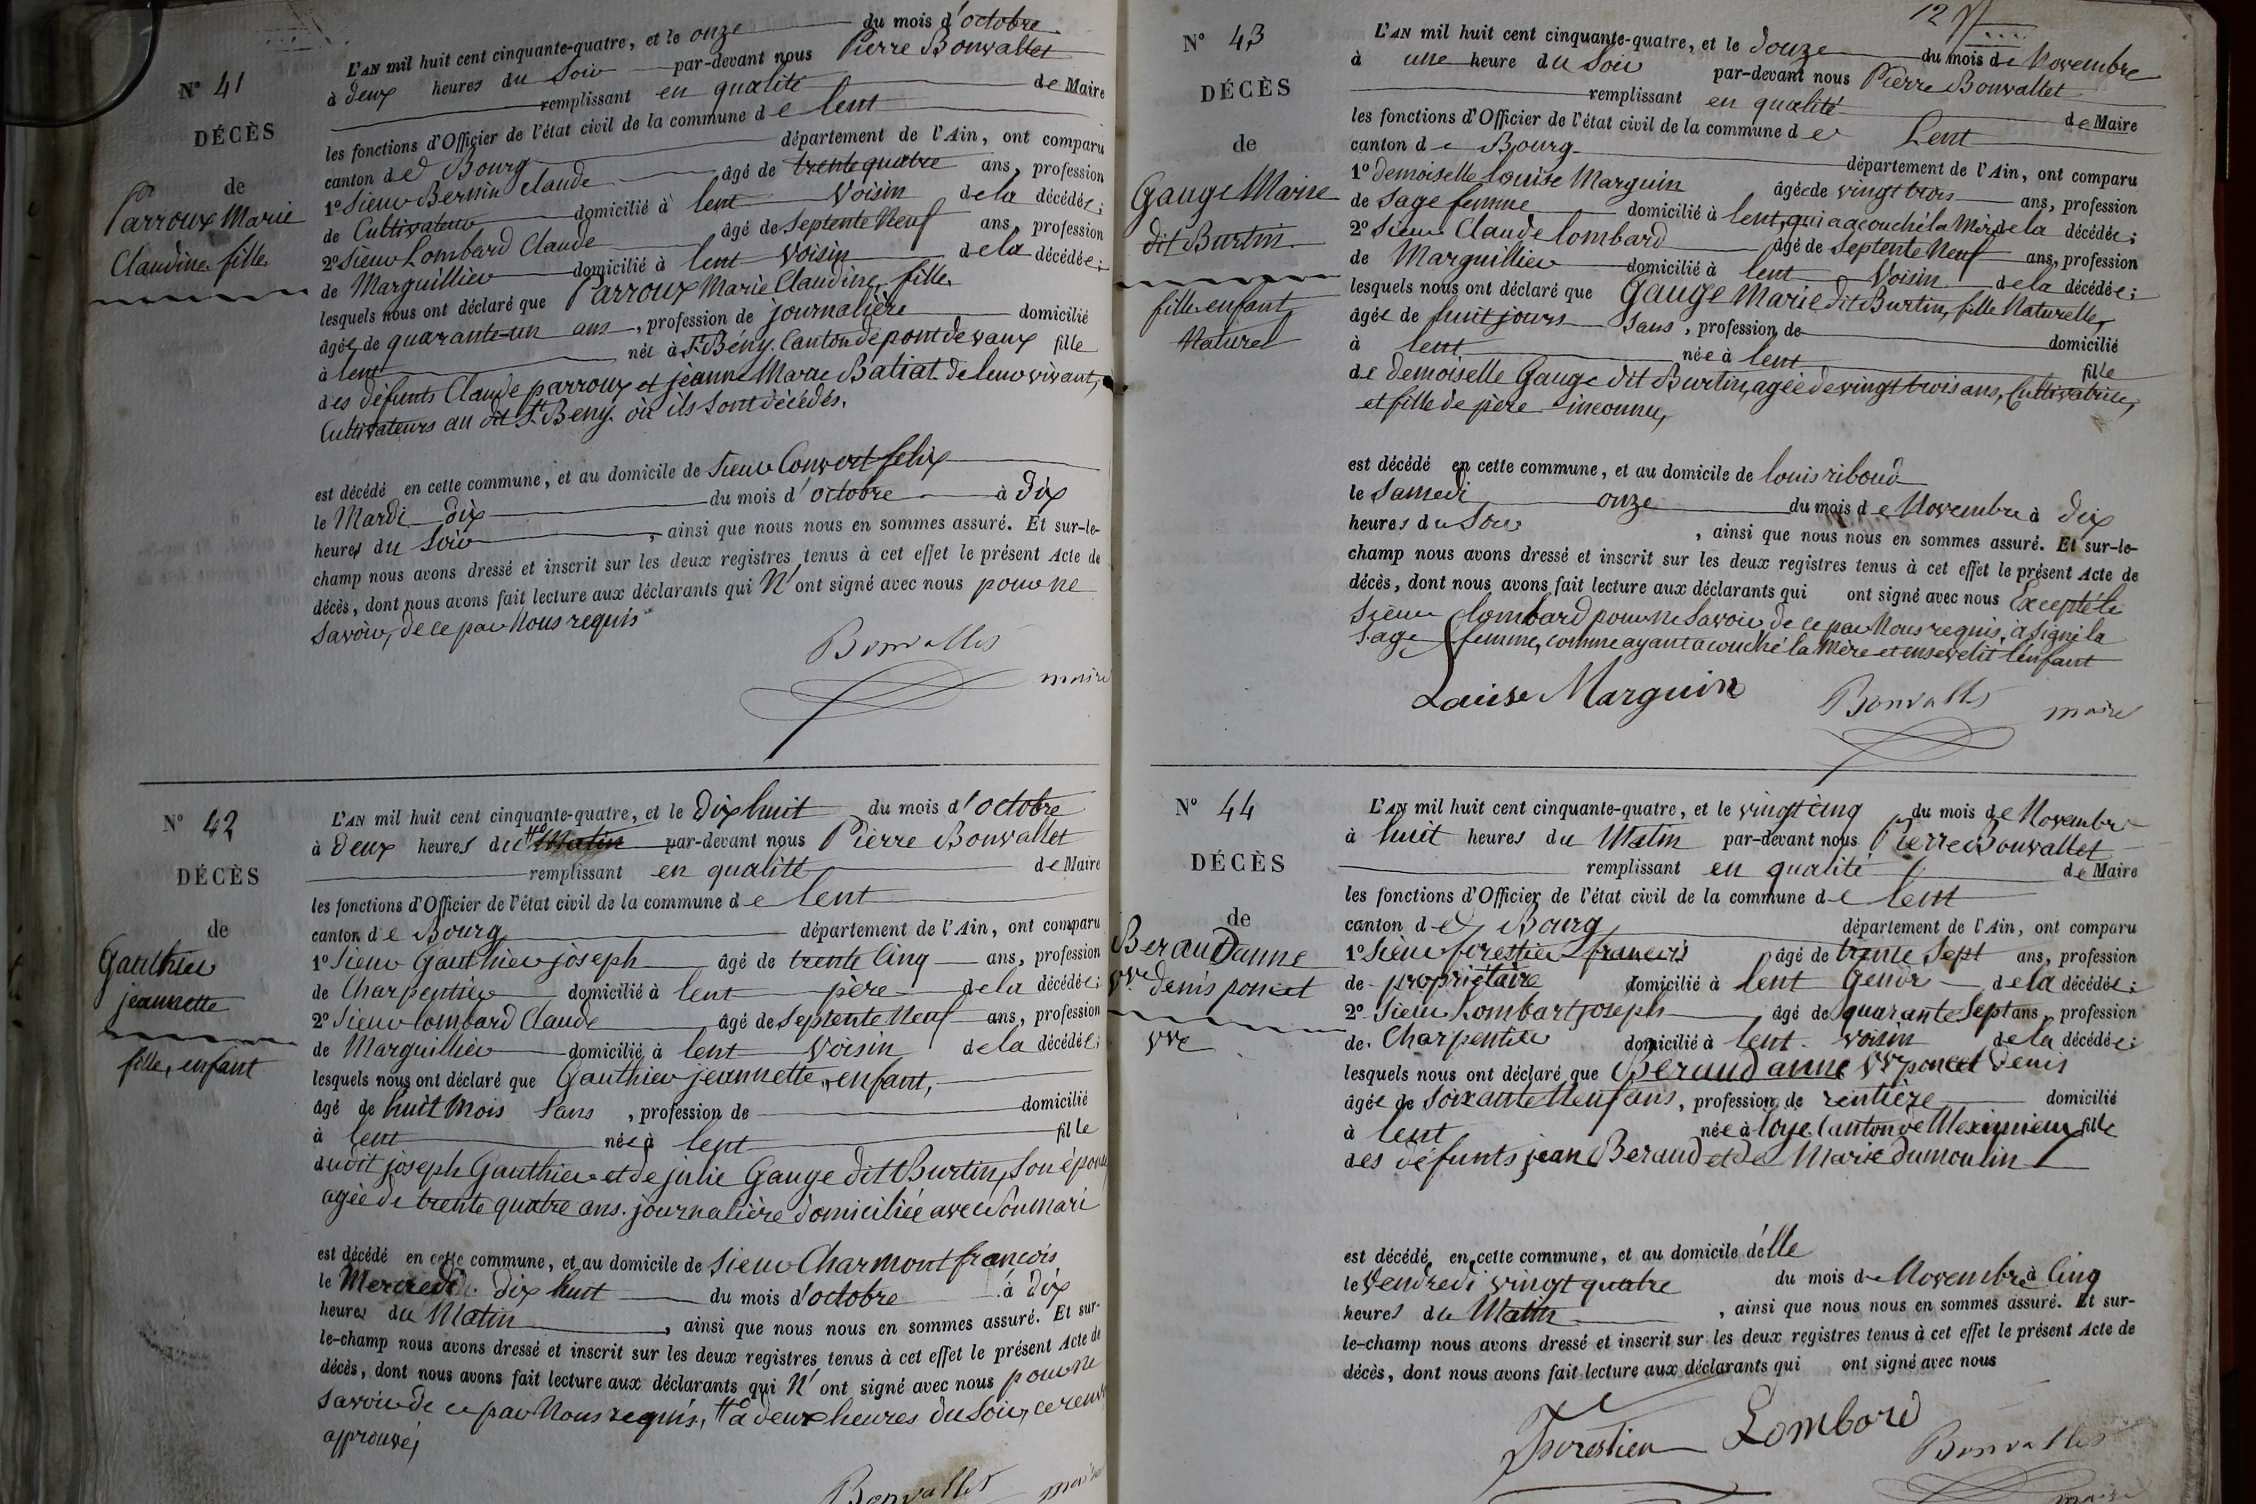 N° 41
DÉCÈS
de
Parroux Marie
Claudine fille
L'AN mil huit cent cinquante-quatre, et le onze du mois d'octobre
à deux heures du Soir par-devant nous Pierre Bonvallet
remplissant en qualité de Maire
les fonctions d'Officier de l'état civil de la commune de lent
canton de Bourg département de l'Ain, ont comparu
1° Sieur Bernin Claude âgé de trente quatre ans, profession
de Cultivateur domicilié à lent Voisin de la décédée;
2° Sieur Lombard Claude âgé de Septente Neuf ans, profession
de Marguillier domicilié à lent Voisin de la décédée;
lesquels nous ont déclaré que Parroux Marie Claudine, fille,
âgée de quarante-un ans, profession de journalière domicilié
à lent née à St Bény Canton de pont de vaux fille
des défunts Claude parroux et jeanne Marie Batiat de leur vivant,
Cultivateurs au dit St Beny où ils sont décédés.
est décédé en cette commune, et au domicile de Sieur Convert felix
le Mardi dix du mois d'octobre à Dix
heures du Soir, ainsi que nous nous en sommes assuré. Et sur-le-
champ nous avons dressé et inscrit sur les deux registres tenus à cet effet le présent Acte de
décès, dont nous avons fait lecture aux déclarants qui N'ont signé avec nous pour ne
Savoir, de ce par Nous requis
Bonvallet
maire
N° 42
DÉCÈS
de
Gauthier
jeannette
fille, enfant
L'AN mil huit cent cinquante-quatre, et le Dix huit du mois d'octobre
à Deux heures du Matin par-devant nous Pierre Bonvallet
remplissant en qualité de Maire
les fonctions d'Officier de l'état civil de la commune de lent
canton de Bourg département de l'Ain, ont comparu
1° Sieur Gauthier joseph âgé de trente Cinq ans, profession
de Charpentier domicilié à lent père de la décédée;
2° Sieur lombard Claude âgé de Septente Neuf ans, profession
de Marguillier domicilié à lent Voisin de la décédée;
lesquels nous ont déclaré que Gauthier jeannette, enfant,
âgé de huit Mois Sans, profession de domicilié
à lent née à lent fille
dudit joseph Gauthier et de julie Gauge dit Burtin, Son épouse
agée de trente quatre ans. journalière domiciliée avec Son mari
est décédé en cette commune, et au domicile de Sieur Charmont françois
le Mercredi dix huit du mois d'octobre à dix
heures du Matin, ainsi que nous nous en sommes assuré. Et sur-
le-champ nous avons dressé et inscrit sur les deux registres tenus à cet effet le présent Acte de
décès, dont nous avons fait lecture aux déclarants qui N'ont signé avec nous pour ne
Savoir de ce par Nous requis, à deux heures du Soir, ce renvoi
approuvé,
Bonvallet maire
12
N° 43
DÉCÈS
de
Gauge Marie
dit Burtin
fille enfant
Naturel
L'AN mil huit cent cinquante-quatre, et le douze du mois de Novembre
à une heure du Soir par-devant nous Pierre Bonvallet
remplissant en qualité de Maire
les fonctions d'Officier de l'état civil de la commune de Lent
canton de Bourg département de l'Ain, ont comparu
1° demoiselle louise Marguin âgée de vingt trois ans, profession
de Sage femme domicilié à lent, qui a acouché la Mère de la décédée;
2° Sieur Claude lombard âgé de Septente Neuf ans, profession
de Marguillier domicilié à lent Voisin de la décédée;
lesquels nous ont déclaré que Gauge Marie dit Burtin, fille Naturelle,
âgée de huit jours Sans, profession de domicilié
à lent née à lent fille
de Demoiselle Gauge dit Burtin, agée de vingt trois ans, Cultivatrice,
et fille de père inconnu,
est décédé en cette commune, et au domicile de louis riboud
le Samedi onze du mois de Novembre à dix
heures du Soir, ainsi que nous nous en sommes assuré. Et sur-le-
champ nous avons dressé et inscrit sur les deux registres tenus à cet effet le présent Acte de
décès, dont nous avons fait lecture aux déclarants qui ont signé avec nous Excepté le
Sieur lombard pour ne Savoir, de ce par Nous requis, a Signé la
Sage femme, comme ayant acouché la Mère et ensevelit l'enfant
Louise Marguin
Bonvallet
maire
N° 44
DÉCÈS
de
Beraud anne
Vve denis poncet
Vve
L'AN mil huit cent cinquante-quatre, et le vingt cinq du mois de Novembre
à huit heures du Matin par-devant nous Pierre Bonvallet
remplissant en qualité de Maire
les fonctions d'Officier de l'état civil de la commune de lent
canton de Bourg département de l'Ain, ont comparu
1° Sieur forestier françois âgé de trente Sept ans, profession
de propriétaire domicilié à lent Gendre de la décédée;
2° Sieur Lombart joseph âgé de quarante Sept ans, profession
de Charpentier domicilié à lent Voisin de la décédée;
lesquels nous ont déclaré que Beraud anne Vve poncet Denis
âgée de Soixante Neuf ans, profession de rentière domicilié
à lent née à loye Canton de Meximieux fille
des défunts jean Beraud et de Marie dumoulin
est décédé en cette commune, et au domicile d'elle
le Vendredi vingt quatre du mois de Novembre à Cinq
heures du Matin, ainsi que nous nous en sommes assuré. Et sur-
le-champ nous avons dressé et inscrit sur les deux registres tenus à cet effet le présent Acte de
décès, dont nous avons fait lecture aux déclarants qui ont signé avec nous
Forestier Lombard
Bonvallet
maire